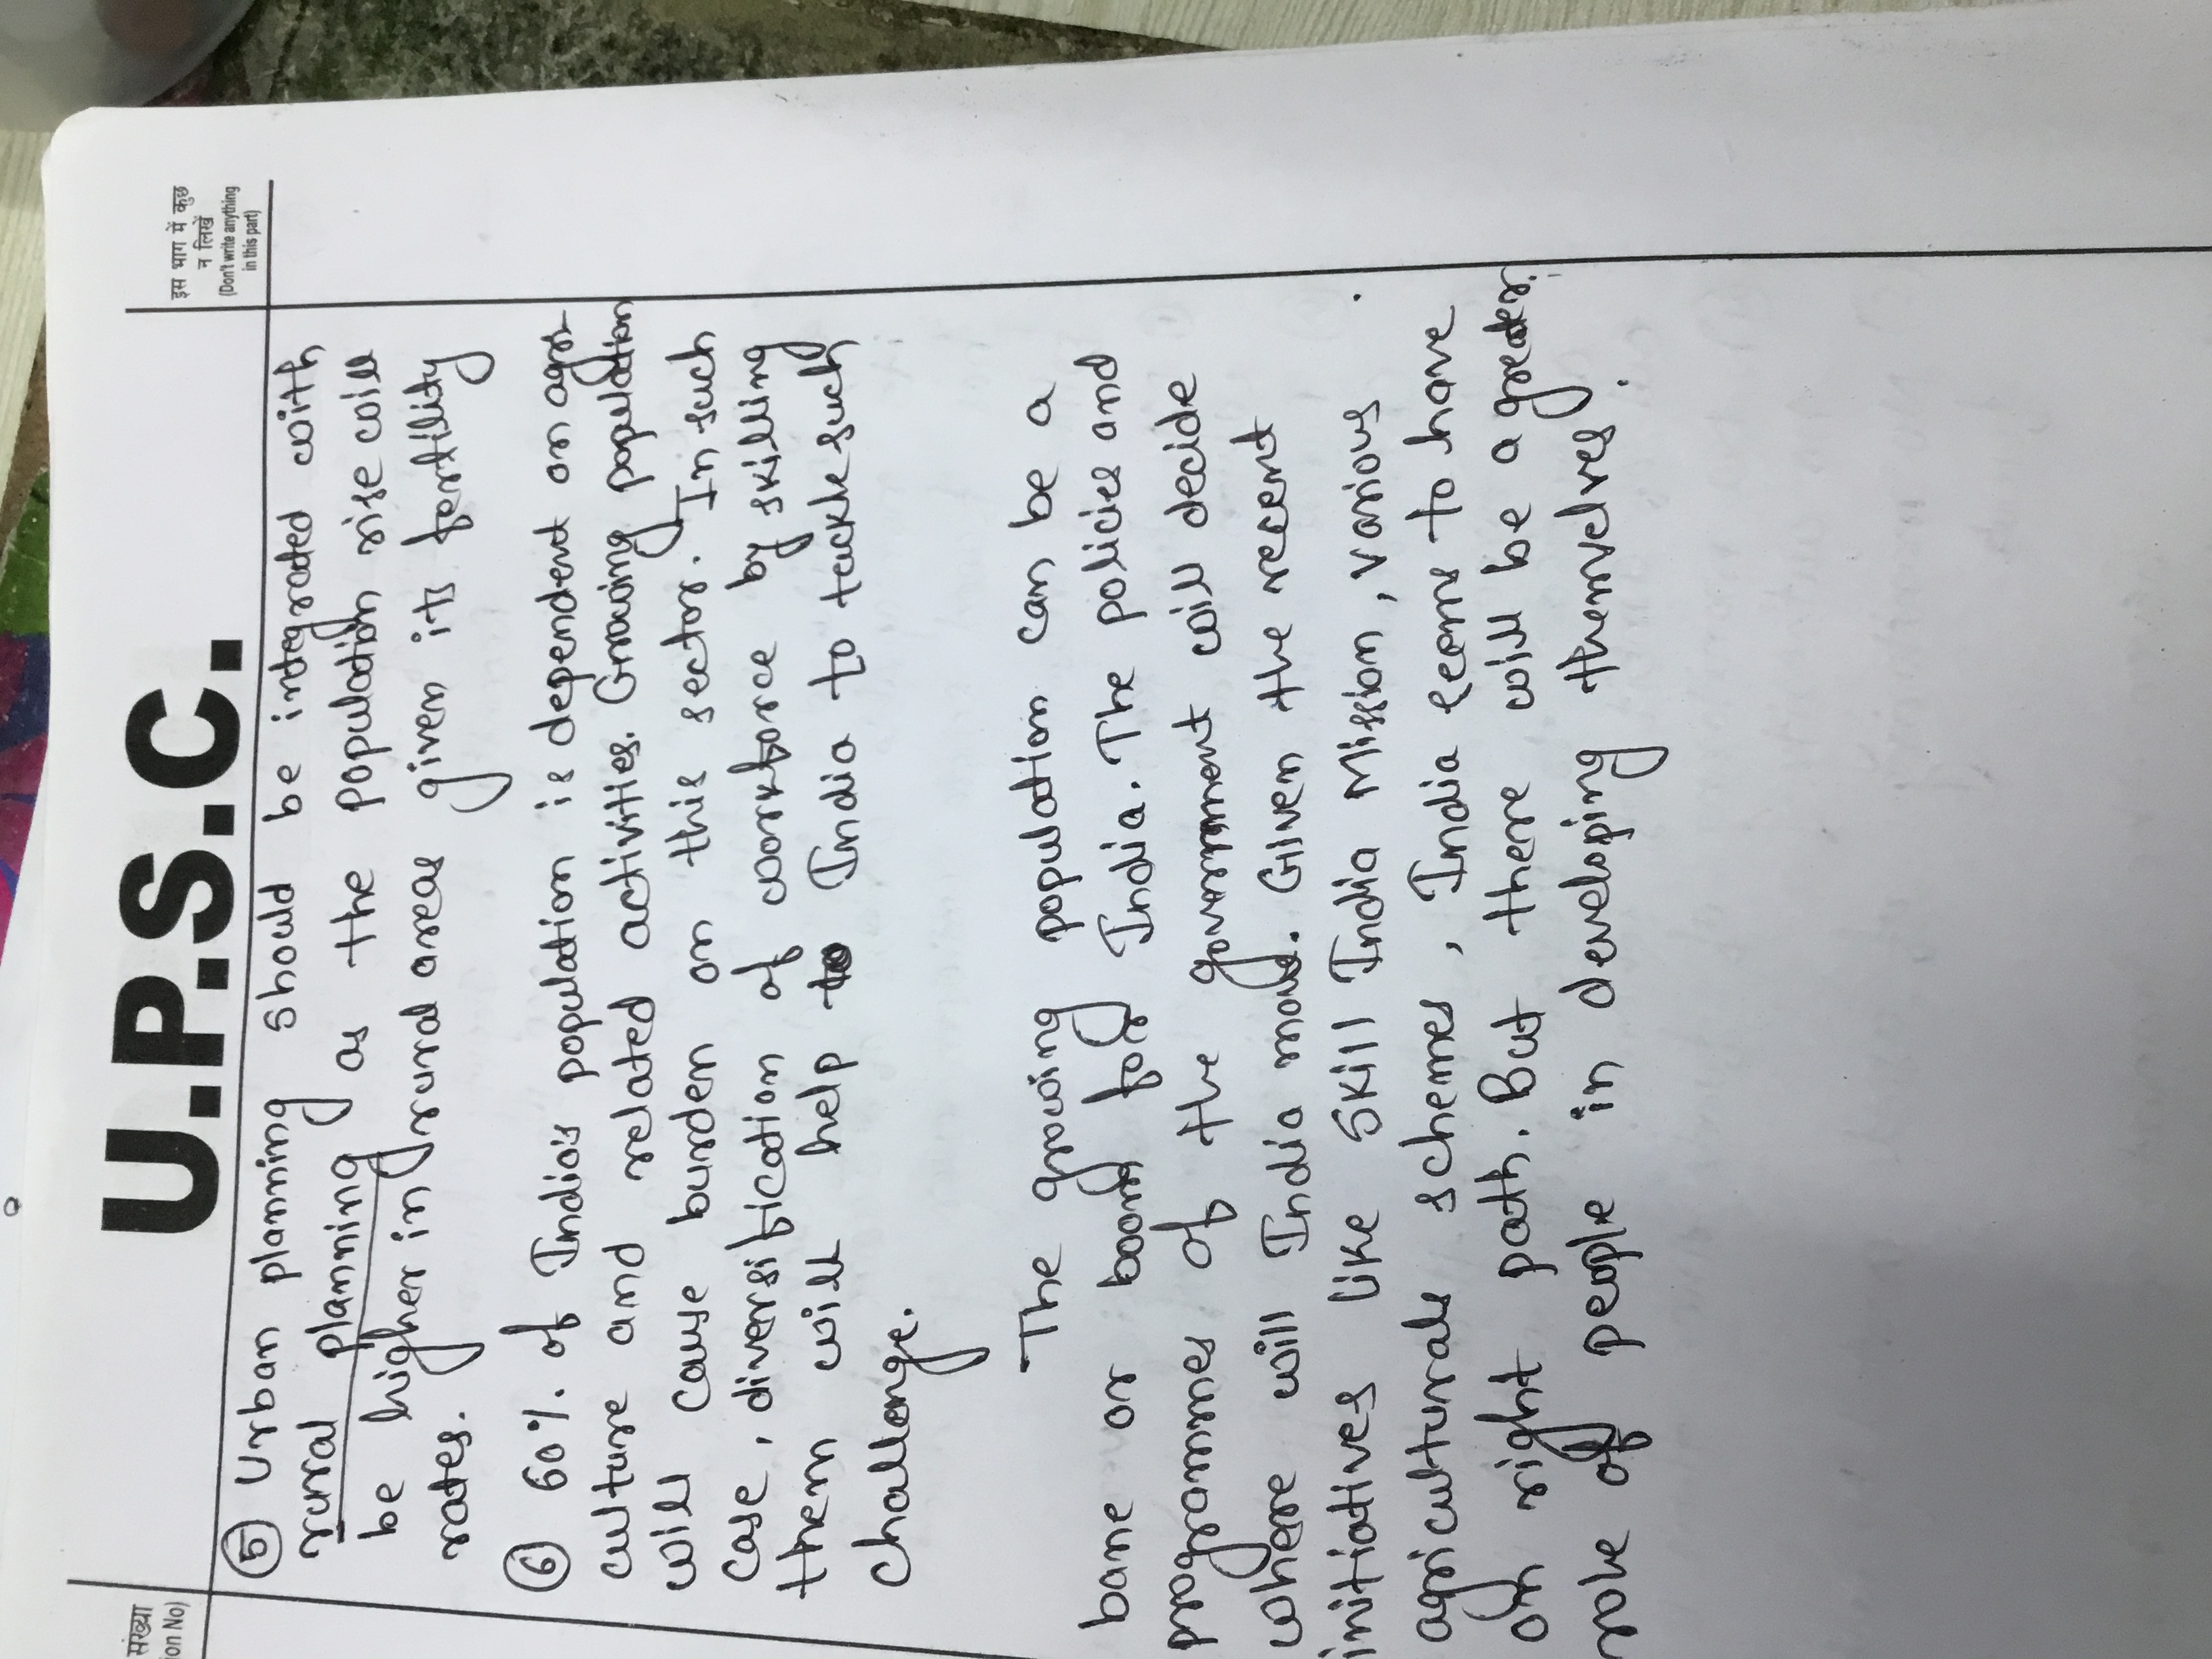 U.P.S.C.
संख्या
ion No)
इस भाग में कुछ
न लिखें
(Don't write anything
in this part)
⑤ Urban planning should be integrated with
rural planning as the population rise will
be higher in rural areas given its fertility
rates.
⑥ 60%. of India's population is dependent on agri-
culture and related activities. Growing population
will cause burden on this sector. In such
case, diversification of workforce by skilling
them will help to India to tackle such
challenge.
The growing population can be a
bane or boon for India. The policies and
programmes of the government will decide
where will India move. Given the recent
initiatives like Skill India Mission, various
agriculturals schemes, India seems to have
on right path. But there will be a greater
role of people in developing themselves.